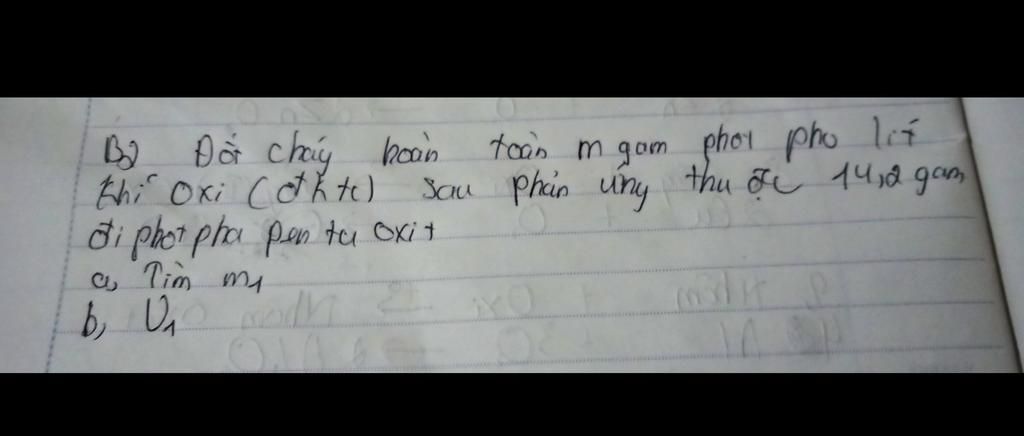 B2 Đốt cháy hoàn toàn m gam phot pho lít
khí oxi (đktc) sau phản ứng thu đc 14,2 gam
đi phot pha pen ta oxit
a, Tìm m1
b, V1